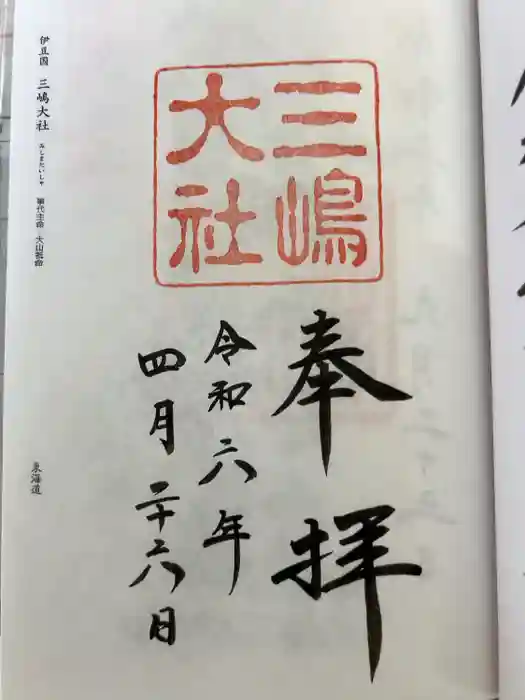 三嶋
大社
奉拝
令和六年
四月二十六日
伊豆國 三嶋大社 みしまたいしゃ 事代主命 大山祇命
東海道